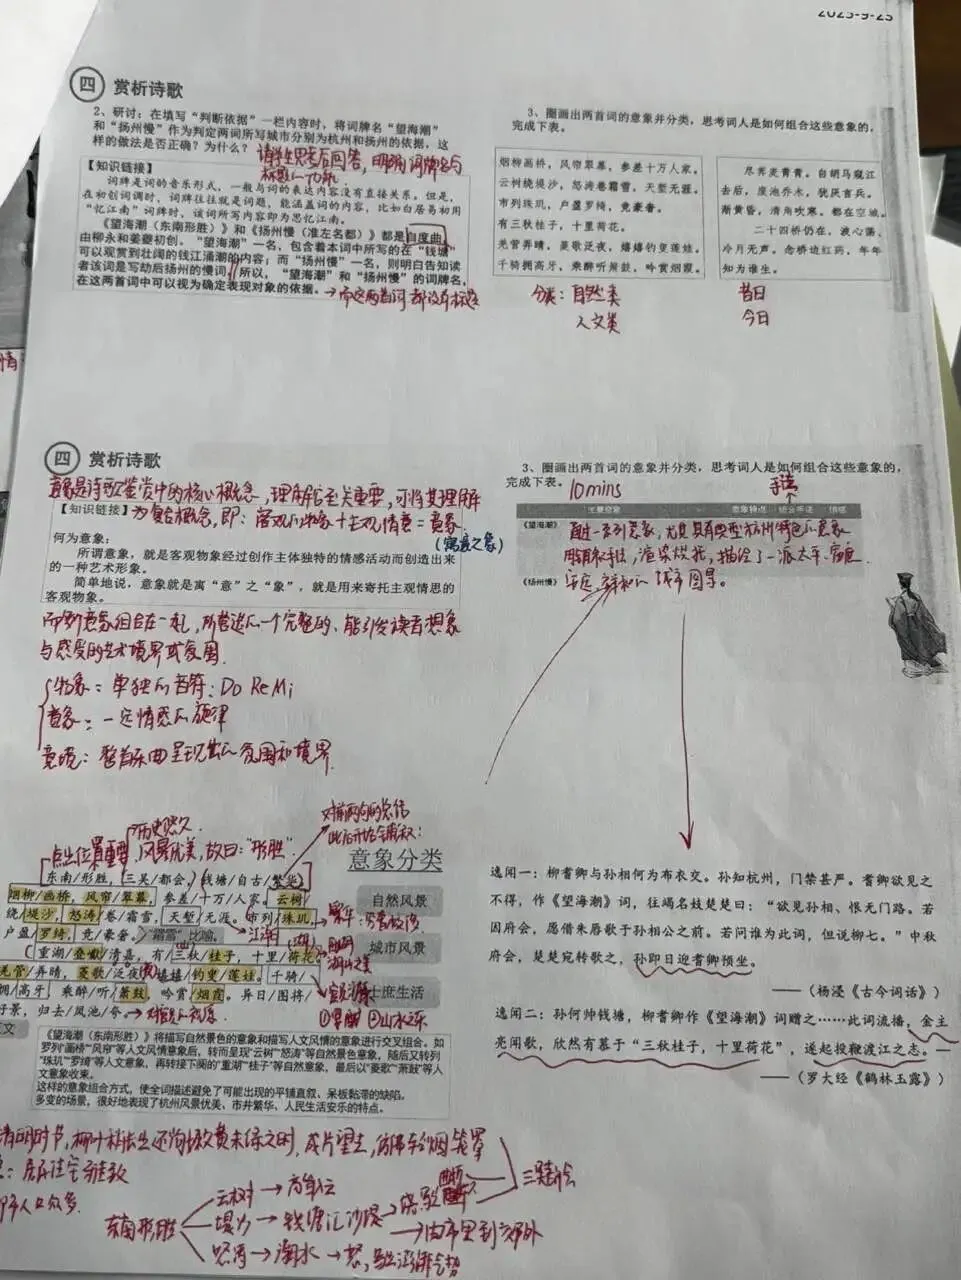 2025-9-25
四 赏析诗歌
2、研讨：在填写“判断依据”一栏内容时，将词牌名“望海潮”
和“扬州慢”作为判定两词所写城市分别为杭州和扬州的依据，这
样的做法是否正确？为什么？
请学生思考后回答，明确词牌名与
【知识链接】
词牌是词的音乐形式，一般与词的表达内容没有直接关系。但是，
在初创词调时，词牌往往就是词题，能涵盖词的内容，比如白居易初用
“忆江南”词牌时，该词所写内容即为思忆江南。
《望海潮（东南形胜）》和《扬州慢（淮左名都）》都是自度曲，
由柳永和姜夔初创。“望海潮”一名，包含着本词中所写的在“钱塘
可以观赏到壮阔的钱江涌潮的内容；而“扬州慢”一名，则明白告知读
者该词是写劫后扬州的慢词。所以，“望海潮”和“扬州慢”的词牌名，
在这两首词中可以视为确定表现对象的依据。
→而这两首词都没有标题
3、圈画出两首词的意象并分类，思考词人是如何组合这些意象的，
完成下表。
烟柳画桥，风帘翠幕，参差十万人家。
云树绕堤沙，怒涛卷霜雪，天堑无涯。
市列珠玑，户盈罗绮，竞豪奢。
有三秋桂子，十里荷花。
羌管弄晴，菱歌泛夜，嬉嬉钓叟莲娃。
千骑拥高牙，乘醉听箫鼓，吟赏烟霞。
尽荠麦青青。自胡马窥江
去后，废池乔木，犹厌言兵。
渐黄昏，清角吹寒。都在空城。
二十四桥仍在，波心荡、
冷月无声。念桥边红药，年年
知为谁生。
分类：自然类
人文类
昔日
今日
四 赏析诗歌
意象是诗歌鉴赏中的核心概念，理解它至关重要，可将其理解
为复合概念，即：客观的物象+主观情意=意象
（寓意之象）
【知识链接】
何为意象：
所谓意象，就是客观物象经过创作主体独特的情感活动而创造出来
的一种艺术形象。
简单地说，意象就是寓“意”之“象”，就是用来寄托主观情思的
客观物象。
而当意象组合在一起，所营造的一个完整的、能引发读者想象
与感受的艺术境界或氛围
物象：单独的音符：Do Re Mi
意象：一定情感的旋律
意境：整首乐曲呈现出的氛围和境界
3、圈画出两首词的意象并分类，思考词人是如何组合这些意象的，
完成下表。
10mins
手法
主要意象 意象特点 组合手法 情感
《望海潮》
通过一系列意象，尤其具有典型杭州特色的意象
用铺叙手法，渲染烘托，描绘了一派太平、富庶
《扬州慢》
城市图景。
对前两句的总结
此后开始铺叙：
历史悠久
点出位置重要，风景优美，故曰：“形胜”
意象分类
东南/形胜，三吴/都会，钱塘/自古/繁华，
烟柳/画桥，风帘/翠幕，参差/十万/人家。云树/
绕/堤沙，怒涛/卷霜雪，天堑/无涯。市列/珠玑，
户盈/罗绮，竞/豪奢。
“霜雪”比喻
江潮
重湖/叠巘/清嘉，有/三秋/桂子，十里/荷花。
羌管/弄晴，菱歌/泛夜，嬉嬉/钓叟/莲娃。千骑/
拥/高牙，乘醉/听/箫鼓，吟赏/烟霞。异日/图将/
好景，归去/凤池/夸。
自然风景
城市风景
士庶生活
湖山之美
②山水之乐
《望海潮（东南形胜）》将描写自然景色的意象和描写人文风情的意象进行交叉组合。如
罗列“画桥”“风帘”等人文风情意象后，转而呈现“云树”“怒涛”等自然景色意象，随后又转列
“珠玑”“罗绮”等人文意象，再转接下阕的“重湖”“桂子”等自然意象，最后以“菱歌”“箫鼓”等人
文意象收束。
这样的意象组合方式，使全词描述避免了可能出现的平铺直叙、呆板黏滞的缺陷。
多变的场景，很好地表现了杭州风景优美、市井繁华、人民生活安乐的特点。
逸闻一：柳耆卿与孙相何为布衣交。孙知杭州，门禁甚严。耆卿欲见之
不得，作《望海潮》词，往谒名妓楚楚曰：“欲见孙相、恨无门路。若
因府会，愿借朱唇歌于孙相公之前。若问谁为此词，但说柳七。”中秋
府会，楚楚宛转歌之，孙即日迎耆卿预坐。
——（杨湜《古今词话》）
逸闻二：孙何帅钱塘，柳耆卿作《望海潮》词赠之……此词流播，金主
亮闻歌，欣然有慕于“三秋桂子，十里荷花”，遂起投鞭渡江之志。—
——（罗大经《鹤林玉露》）
清明时节，柳叶
人口众多
东南形胜
云树→
堤沙→钱塘江沙堤
→由市里到郊外
怒涛→潮水→